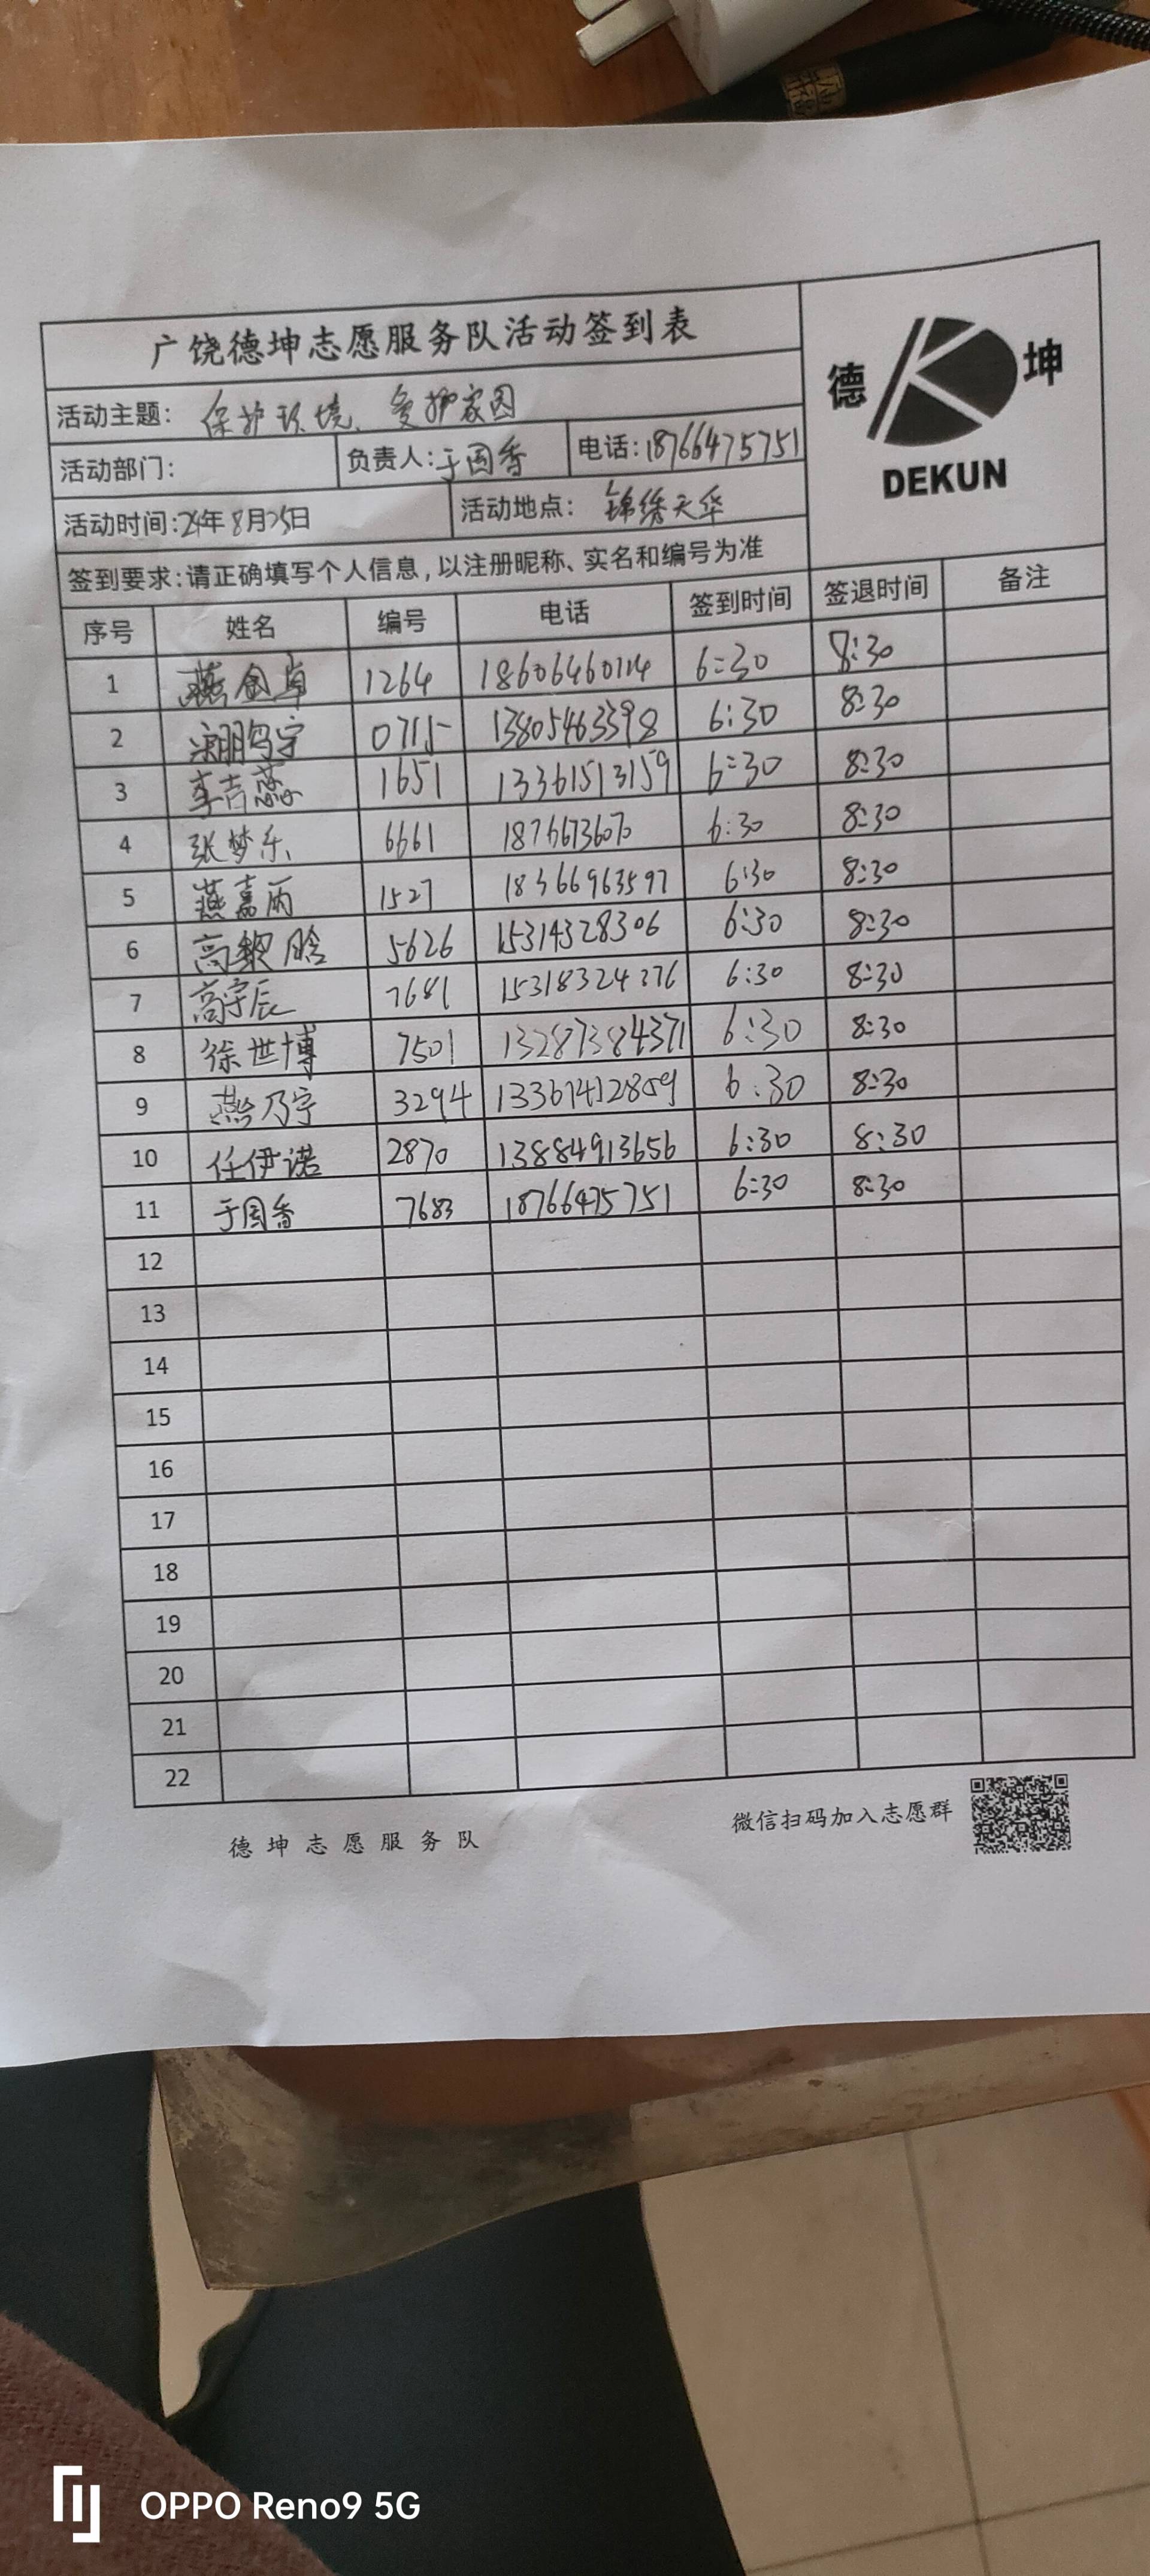 广饶德坤志愿服务队活动签到表
德 坤
DEKUN
活动主题: 保护环境、爱护家园
活动部门: 负责人:于国香 电话:18766475751
活动时间:24年8月25日 活动地点: 锦绣天华
签到要求:请正确填写个人信息,以注册昵称、实名和编号为准
序号 姓名 编号 电话 签到时间 签退时间 备注
1 燕金卓 1264 18606460114 6:30 8:30
2 0715 13805463398 6:30 8:30
3 李吉蕊 1651 13361513159 6:30 8:30
4 张梦乐 6661 1876673607 6:30 8:30
5 燕嘉丙 1527 18366963597 6:30 8:30
6 高 晗 5626 15314328306 6:30 8:30
7 高宇辰 7681 15318324376 6:30 8:30
8 徐世博 7501 13287384371 6:30 8:30
9 燕乃宇 3294 13361412859 6:30 8:30
10 任伊诺 2870 13884913656 6:30 8:30
11 于国香 7683 18766475751 6:30 8:30
12
13
14
15
16
17
18
19
20
21
22
德坤志愿服务队 微信扫码加入志愿群
OPPO Reno9 5G